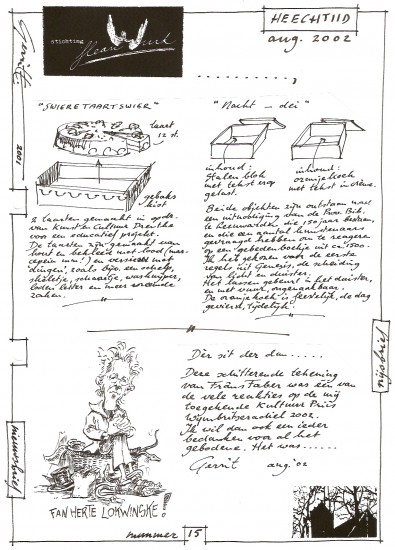 stichting
HEECHTIID
aug. 2002
Gerrit
2001
"SWIERE TAARTSWIER"
taart
12 st.
gebaks
kist
2 taarten gemaakt in opdr.
van Kunst en Cultuur Drenthe
voor een educatief projekt.
De taarten zijn gemaakt van
hout en bekleed met lood
dingen, zoals bijv. een schelp,
skeletje, schaartje, waskunjper,
loden letter en meer
zaken.
"Nacht – dei"
inhoud:
Stalen blok
met tekst erop
gelast.
inhoud:
oranjekoek
met tekst in crème.
Beide objekten zijn ontstaan naar
een uitnodiging van de Prov. Bib.
te Leeuwarden, die 150 jaar bestaan,
en die een aantal kunstenaars
gevraagd hebben om te reageren
op een gebedenboekje uit ca. 1500.
Ik heb gekozen voor de eerste
regels uit Genesis, de scheiding
van licht en duister.
Het lassen gebeurt in het duister,
en met vuur, ongenaakbaar.
De oranjekoek is feestelijk, de dag
gevierd, tijdelijk.
Dêr sit der dan......
Deze schitterende tekening
van Frâns Faber was één van
de vele reakties op de mij
toegekende Kultuur Priis
Wymbritseradiel 2002.
Ik wil dan ook een ieder
bedanken voor al het
gebodene. Het was......
Gerrit aug. '02
FAN HERTE LOKWINSKE!
nijsbrief
nieuwsbrief
nummer 15